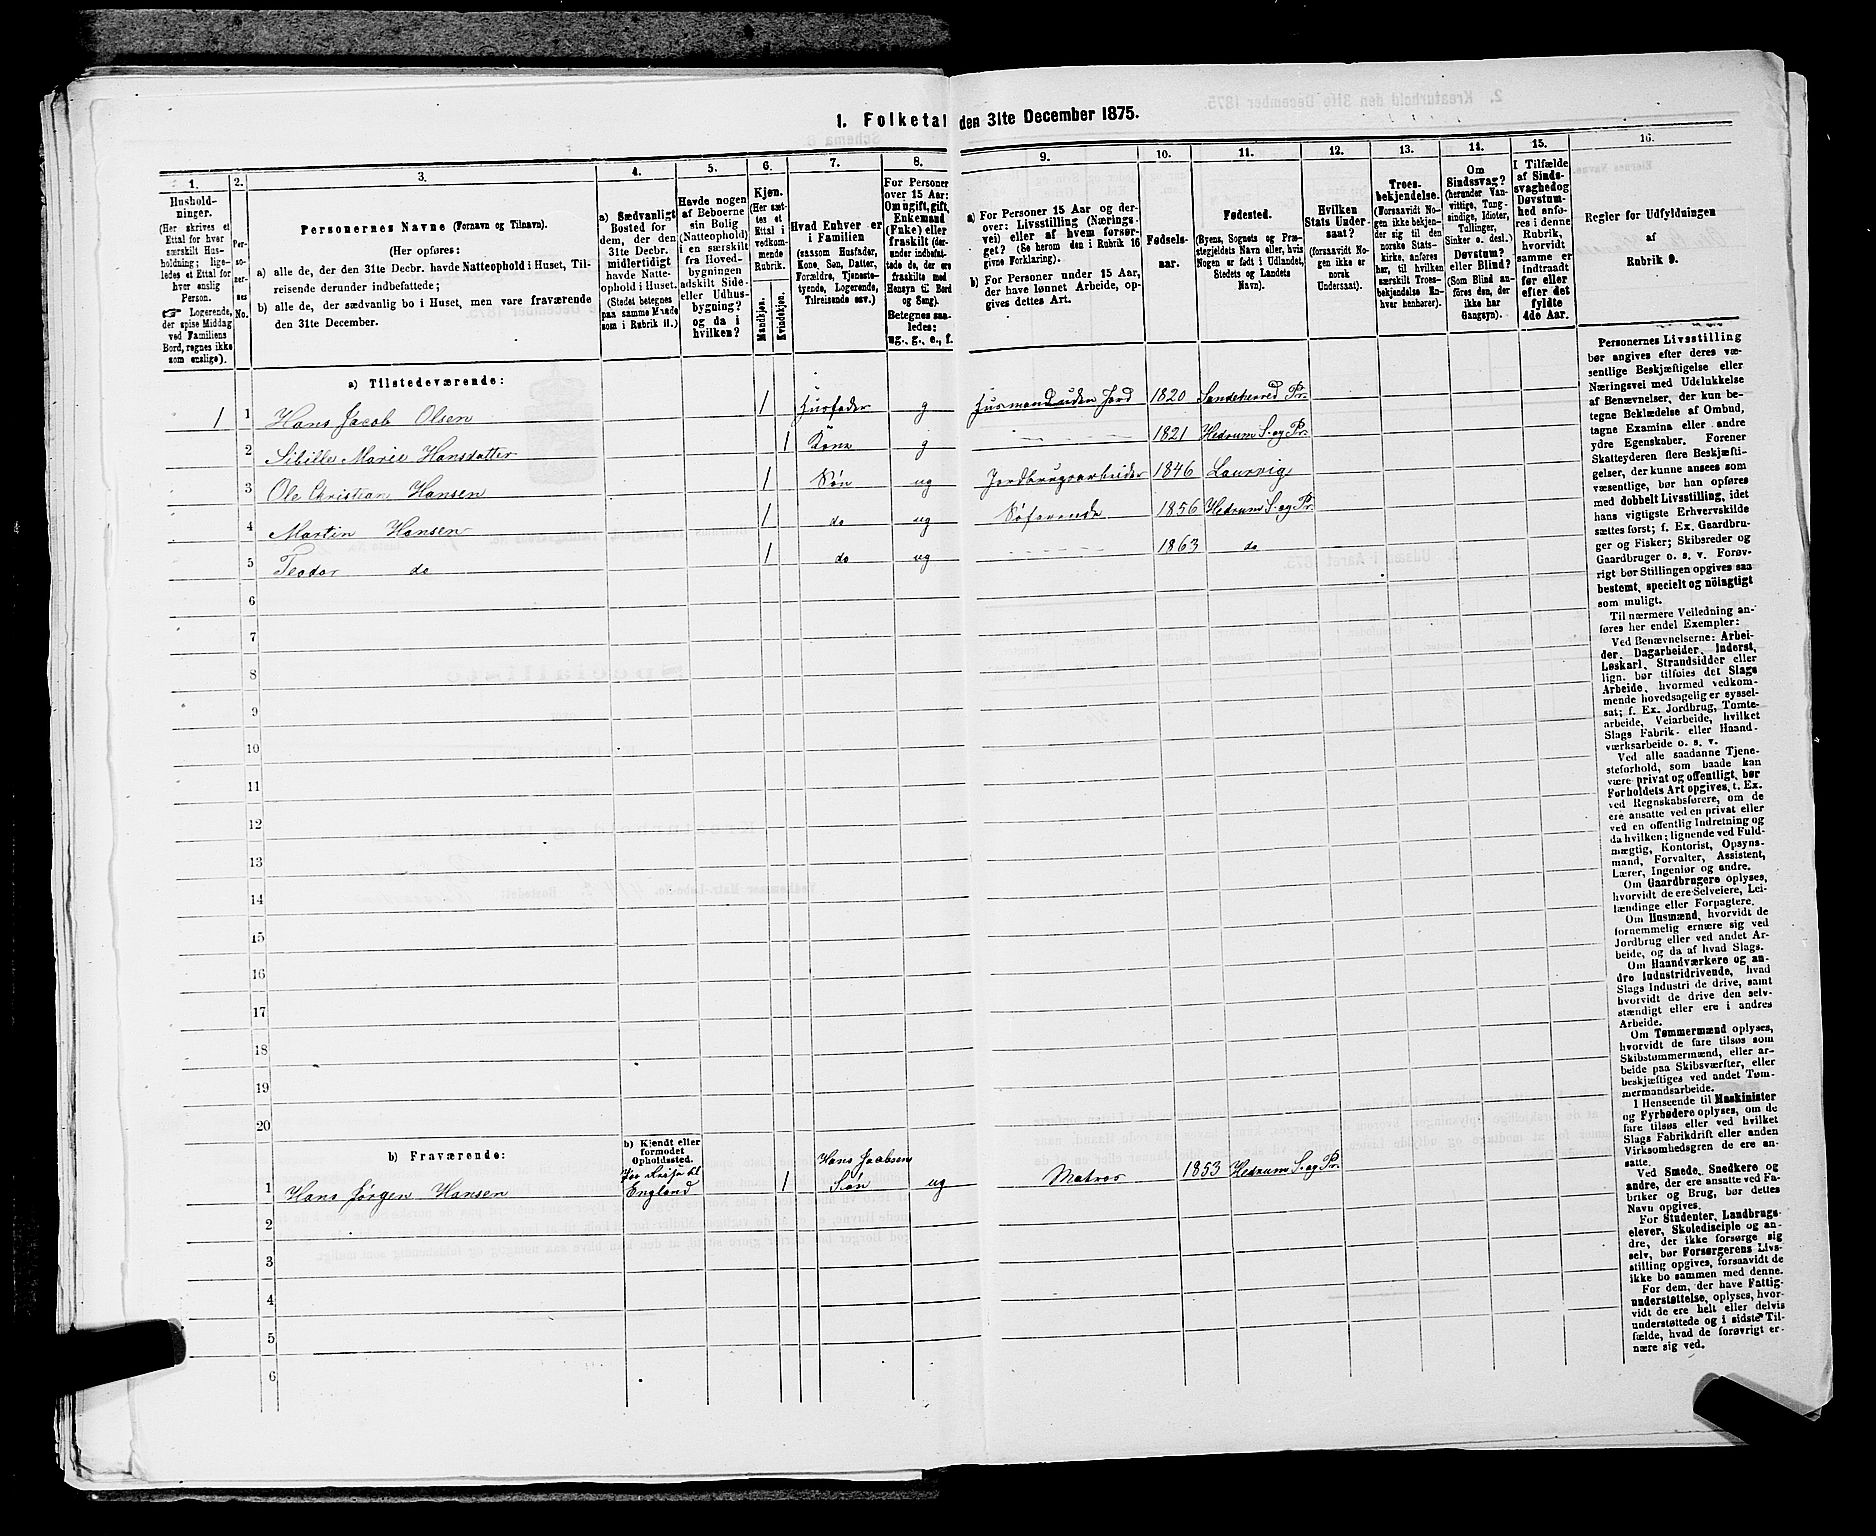 1. Folketal den 31te December 1875.
1.
Husholdninger.
(Her skrives et
Ettal for hver
særskilt Husholdning;
ligeledes et Ettal for
hver enslig
Person.
☞ Logerende,
der spise Middag
ved Familiens
Bord, regnes ikke
som enslige).
2.
Personernes
No.
3.
Personernes Navne (Fornavn og Tilnavn).
(Her opføres:
a) alle de, der den 31te Decbr. havde Natteophold i Huset, Tilreisende
derunder indbefattede;
b) alle de, der sædvanlig bo i Huset, men vare fraværende
den 31te December.
4.
a) Sædvanligt
Bosted for
dem, der den
31te Decbr.
midlertidigt
havde Natteophold
i Huset.
(Stedet betegnes
paa samme Maade
som i Rubrik 11.)
5.
Havde nogen
af Beboerne
sin Bolig
(Natteophold)
i en særskilt
fra Hovedbygningen
adskilt Side-
eller Udhusbygning?
og da i
hvilken?
6.
Kjøn.
(Her sættes
et
Ettal i
vedkommende
Rubrik.
Mandkjøn.
Kvindekjøn.
7.
Hvad Enhver er
i Familien
(saasom Husfader,
Kone, Søn, Datter,
Forældre, Tjenestetyende,
Logerende,
Tilreisende osv.)
8.
For Personer
over 15 Aar:
Om ugift, gift,
Enkemand
(Enke) eller
fraskilt
Betegnes saaledes:
ug., g., e., f.
9.
a) For Personer 15 Aar og derover:
Livsstilling (Næringsvei)
eller af hvem forsørget?
(Se herom den i Rubrik 16
givne Forklaring).
b) For Personer under 15 Aar,
der have lønnet Arbeide, opgives
dettes Art.
10.
Fødselsaar.
11.
Fødested.
(Byens, Sognets og Præstegjeldets
Navn eller, hvis
Nogen er født i Udlandet,
Stedets og Landets
Navn).
12.
Hvilken
Stats Undersaat?
(forsaavidt Nogen
ikke er
norsk
Undersaat).
13.
Troesbekjendelse.
(Forsaavidt Nogen
ikke bekjender
sig til den
norske Statskirke,
anføres
her, til hvilken
særskilt Troesbekjendelse
Enhver
henhører).
14.
Om
Sindssvag?
(herunder Vanvittige,
Tungsindige,
Idioter,
Tullinger,
Sinker o. desl.)
Døvstum?
eller Blind?
(Som Blind anføres
den, der
ikke har
Gangsyn).
15.
I Tilfælde
af Sindssvaghed
og
Døvstumhed
anføres
i denne
Rubrik,
hvorvidt
samme er
indtraadt
før eller
efter det
fyldte
4de Aar.
16.
Regler for Udfyldningen
af
Rubrik 9.
a) Tilstedeværende:
1 1 Hans Jacob Olsen 1 Husfader g Husmand uden Jord 1820 Sandeherred Pr.
2 Sibille Marie Hansdatter 1 Kone g 1821 Hedrum S. og Pr.
3 Ole Christian Hansen 1 Søn ug Jordbrugsarbeider 1846 Laurvig
4 Martin Hansen 1 do ug Søfarende 1856 Hedrum S. og Pr.
5 Teodor do 1 do ug 1863 do
6
7
8
9
10
11
12
13
14
15
16
17
18
19
20
b) Fraværende:
b) Kjendt eller
formodet
Opholdssted.
1 Hans Jørgen Hansen England 1 Hans Jacobsen Søn ug Matros 1853 Hedrum S. og Pr.
2
3
4
5
6
Personernes Livsstilling
bør angives efter deres væsentlige
Beskjæftigelse eller
Næringsvei med Udelukkelse
af Benævnelser, der kun betegne
Beklædelse af Ombud,
tagne Examina eller andre
ydre Egenskaber. Forener
Skatteyderen flere Beskjæftigelser,
der kunne ansees som
væsentlige, bør han opføres
med dobbelt Livsstilling, idet
hans vigtigste Erhvervskilde
sættes først; f. Ex. Gaardbruger
og Fisker; Skibsreder og
Gaardbruger o. s. v. Forøvrigt
bør Stillingen opgives saa
bestemt, specielt og nöiagtigt
som muligt.
Til nærmere Veiledning anføres
her endel Exempler:
Ved Benævnelserne: Arbeider,
Dagarbeider, Inderst,
Løskarl, Strandsidder eller
lign. bør tilføies det Slags
Arbeide, hvormed vedkommende
hovedsagelig er sysselsat;
f. Ex. Jordbrug, Tomtearbeide,
Veiarbeide, hvilket
Slags Fabrik- eller Haandværksarbeide
o. s. v.
Ved alle saadanne Tjenesteforhold,
som baade kan
være privat og offentligt, bør
Forholdets Art opgives, t. Ex.
ved Regnskabsførere, om de
ere ansatte ved en privat eller
ved en offentlig Indretning og
da hvilken; lignende ved Fuldmægtig,
Kontorist, Opsynsmand,
Forvalter, Assistent,
Lærer, Ingeniør og andre.
Om Gaardbrugere oplyses,
hvorvidt de ere Selveiere, Leilændinge
eller Forpagtere.
Om Husmænd, hvorvidt de
fornemmelig ernære sig ved
Jordbrug eller ved andet Arbeide,
og da af hvad Slags.
Om Haandværkere og andre
Industridrivende, hvad
Slags Industri de drive, samt
hvorvidt de drive den selvstændigt
eller ere i andres
Arbeide.
Om Tømmermænd oplyses,
hvorvidt de fare tilsøs som
Skibstømmermænd, eller arbeide
paa Skibsværfter, eller
beskjæftiges ved andet Tømmermandsarbeide.
I Henseende til Maskinister
og Fyrbødere oplyses, om de
fare tilsøs eller ved hvilket
Slags Fabrikdrift eller anden
Virksomhedsgren de ere ansatte.
Ved Smede, Snedkere og
andre, der ere ansatte ved Fabriker
og Brug, bør dettes
Navn opgives.
For Studenter, Landbrugselever,
Skoledisciple og andre,
der ikke forsørge sig
selv, bør Forsørgerens Livsstilling
opgives, forsaavidt de
ikke bo sammen med denne.
For dem, der have Fattigunderstøttelse,
oplyses, hvorvidt
de ere helt eller delvis
understøttede og i sidste Tilfælde,
hvad de forøvrigt ernære
sig ved.